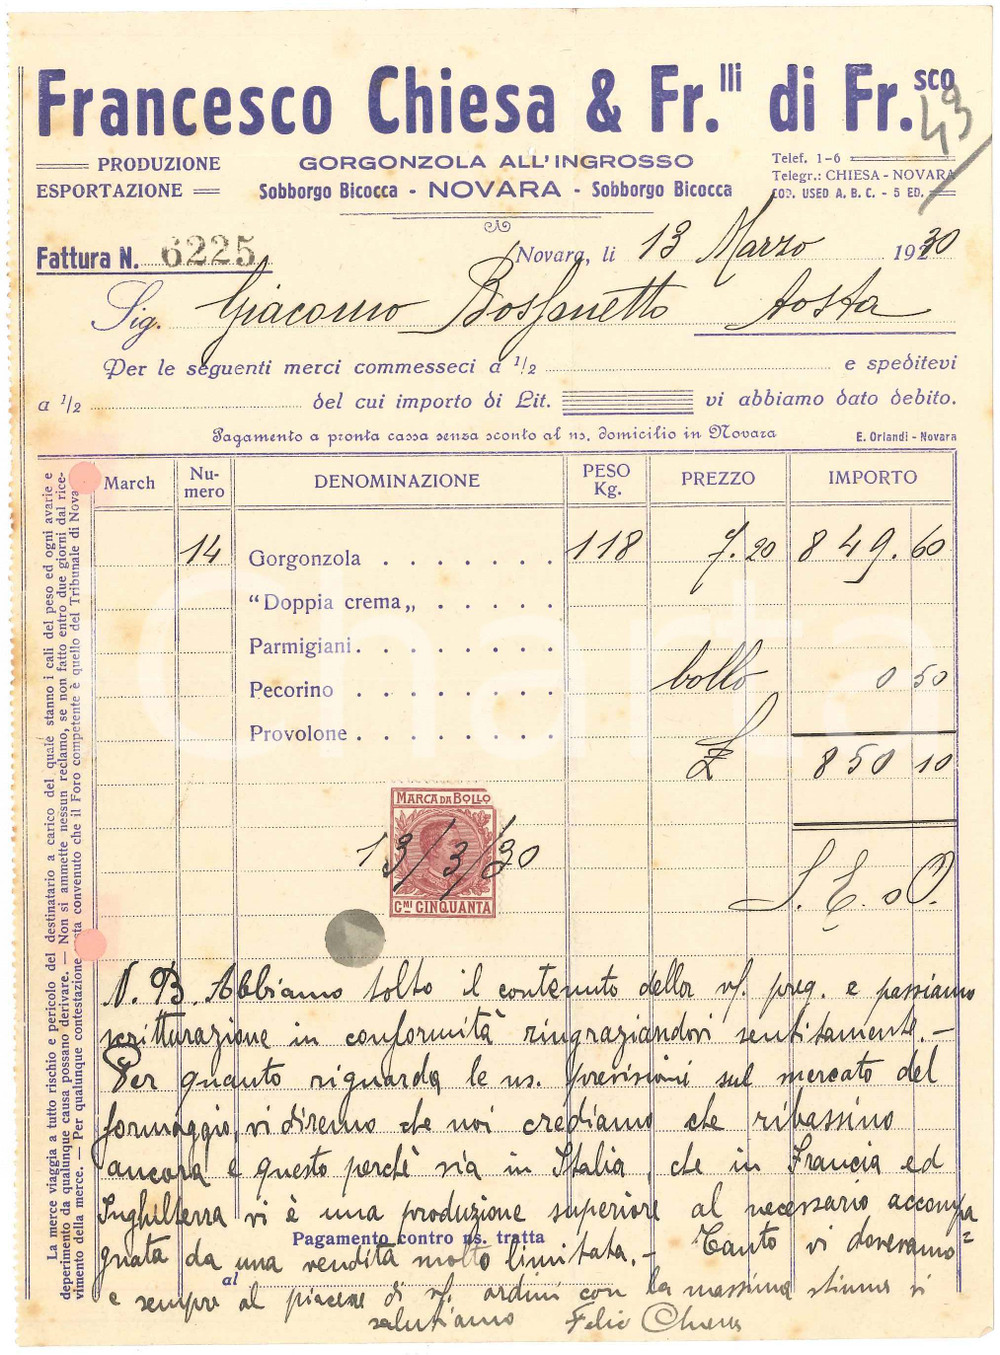 Francesco Chiesa & Fr.lli di Fr.sco
43
PRODUZIONE
ESPORTAZIONE
GORGONZOLA ALL'INGROSSO
Sobborgo Bicocca - NOVARA - Sobborgo Bicocca
Telef. 1-6
Telegr.: CHIESA - NOVARA
COD. USED A. B. C. - 5 ED.
Fattura N. 6225
Novara, li 13 Marzo 1930
Sig. Giacomo Bosonetto Aosta
Per le seguenti merci commesseci a 1/2 e speditevi
a 1/2 del cui importo di Lit. vi abbiamo dato debito.
Pagamento a pronta cassa senza sconto al ns. domicilio in Novara
E. Orlandi - Novara
March Nu-mero DENOMINAZIONE PESO Kg. PREZZO IMPORTO
14 Gorgonzola 118 7.20 849.60
"Doppia crema„
Parmigiani
Pecorino bollo 0 50
Provolone
£ 850 10
MARCA DA BOLLO
13/3/30
C.MI CINQUANTA
S. E. o O.
N. B. Abbiamo tolto il contenuto della vs. preg. e passiamo
scritturazione in conformità ringraziandovi sentitamente. -
Per quanto riguarda le ns. previsioni sul mercato del
formaggio, vi diremo che noi crediamo che ribassino
ancora e questo perchè sia in Italia, che in Francia ed
Inghilterra vi è una produzione superiore al necessario accompa
Pagamento contro ns. tratta
gnata da una vendita molto limitata. - Tanto vi dovevamo
al
e sempre al piacere di vs. ordini con la massima stima vi
salutiamo Felice Chiesa
La merce viaggia a tutto rischio e pericolo del destinatario a carico del quale stanno i cali del peso ed ogni avarie e
deperimento da qualunque causa possano derivare. — Non si ammette nessun reclamo, se non fatto entro due giorni dal rice-
vimento della merce. — Per qualunque contestazione resta convenuto che il Foro competente è quello del Tribunale di Nova
Charta